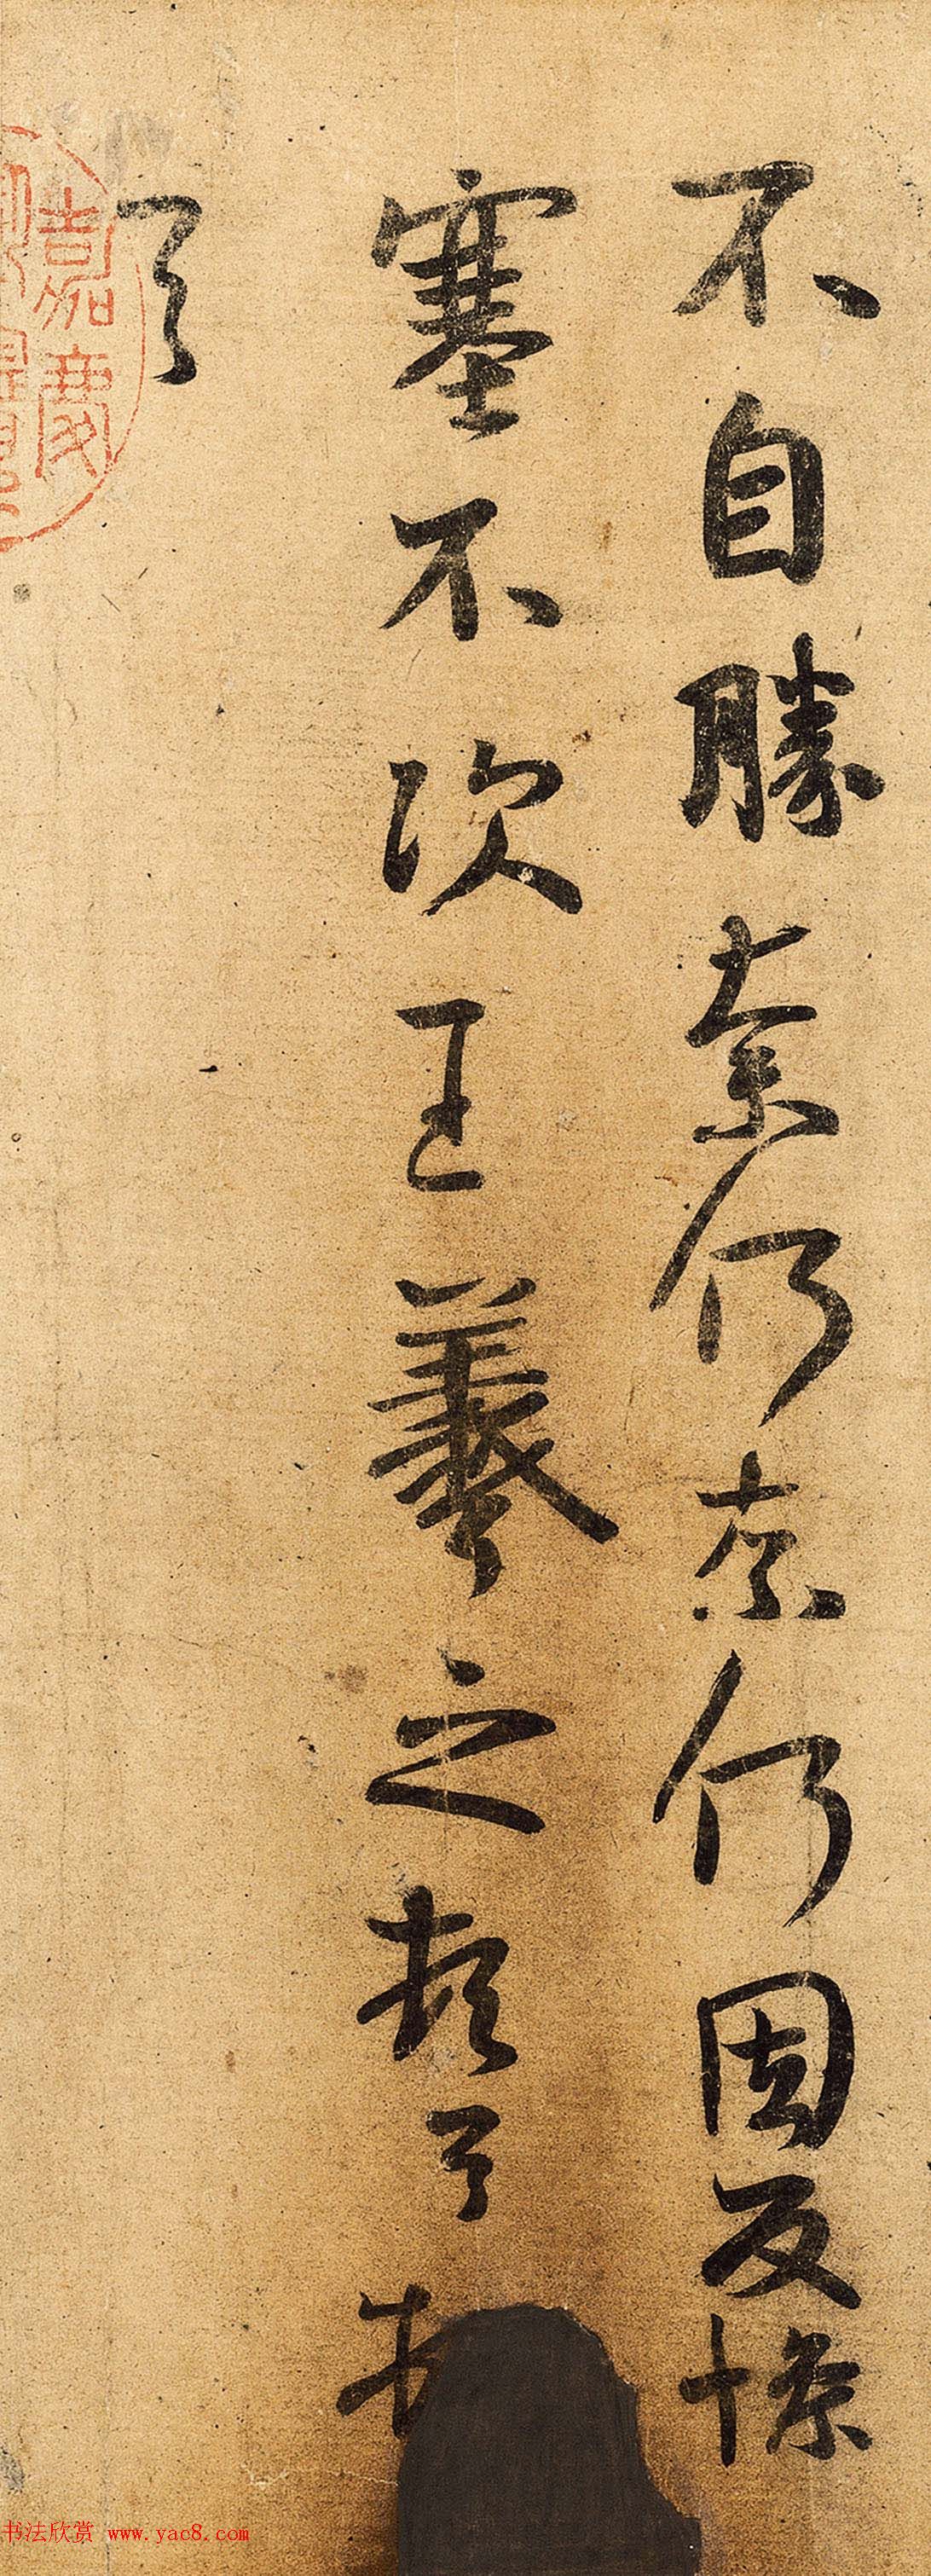 不自勝奈何奈何因反慘
塞不次王羲之頓首頓
首
嘉慶
书法欣赏 www.yac8.com